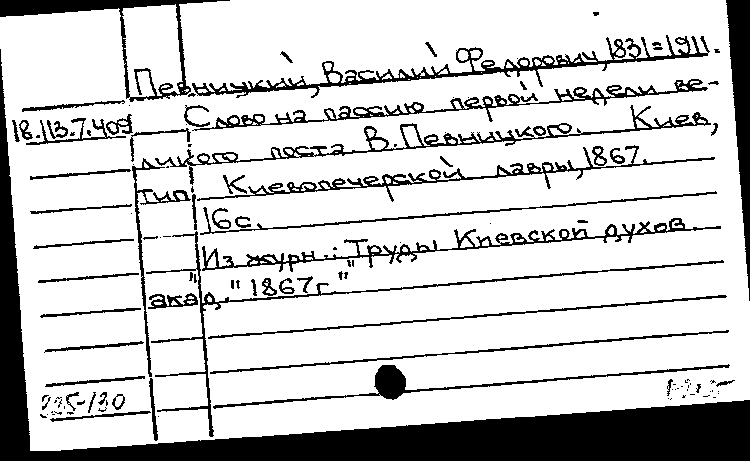 Певницкий, Василий Федорович, 1831=1911.
18.113.7.409 Слово на пассию первой недели ве-
ликого поста В. Певницкого. Киев,
тип. Киевопечерской лавры, 1867.
16с.
Из журн.: "Труды Киевской духов.
акад." 1867г."
225-130